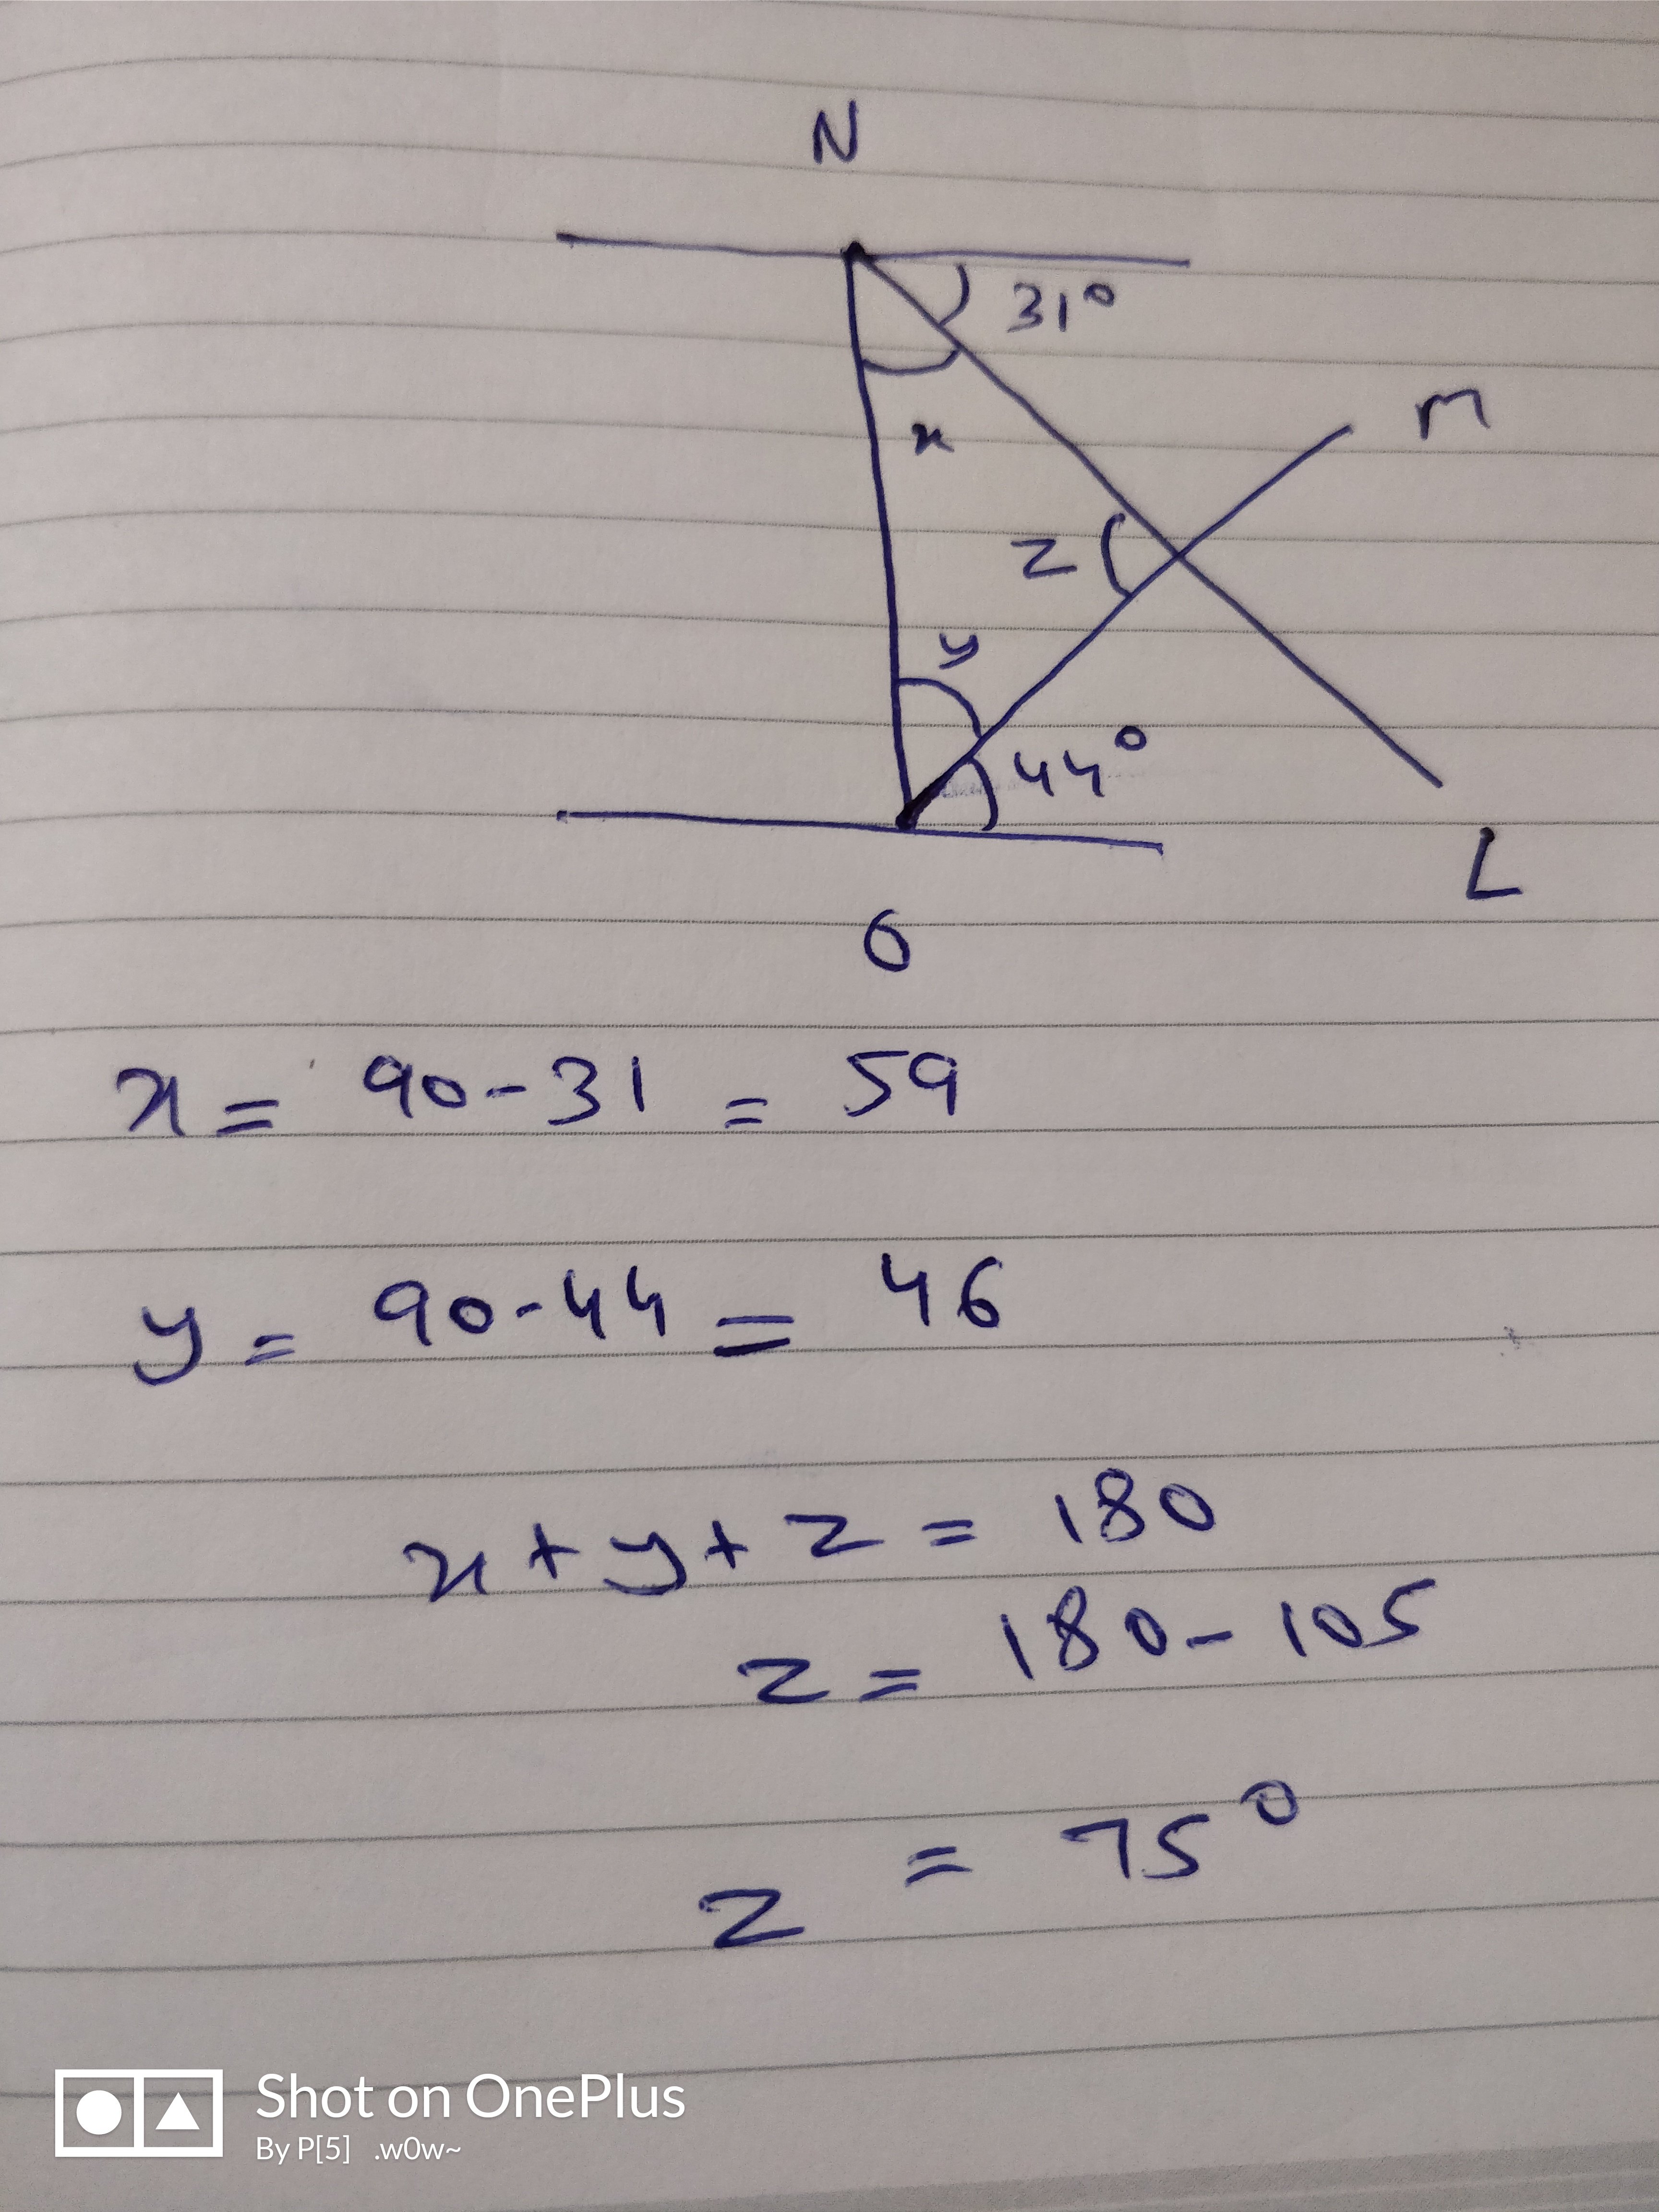 N
31°
x
M
z
y
44°
L
O
x = 90 - 31 = 59
y = 90 - 44 = 46
x + y + z = 180
z = 180 - 105
z = 75°
Shot on OnePlus
By P[5] .w0w~